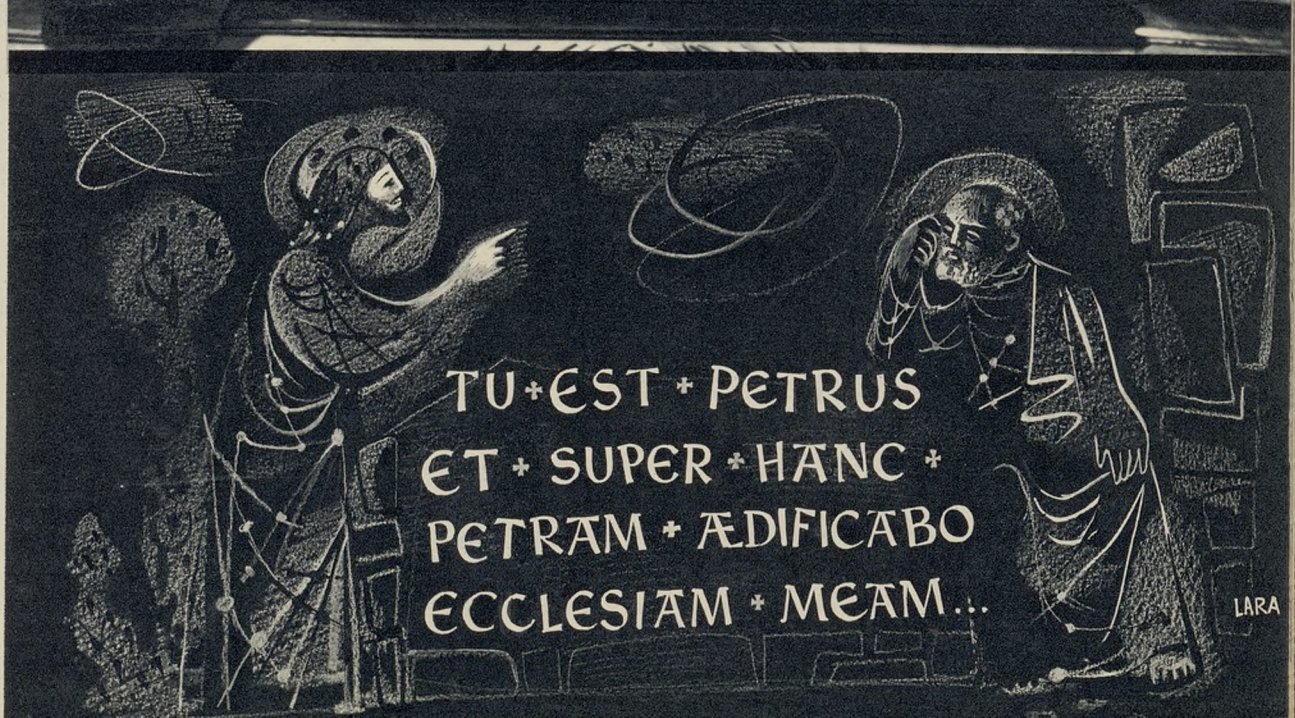 TU + EST + PETRUS
ET + SUPER + HANC +
PETRAM + ÆDIFICABO
ECCLESIAM + MEAM...
LARA